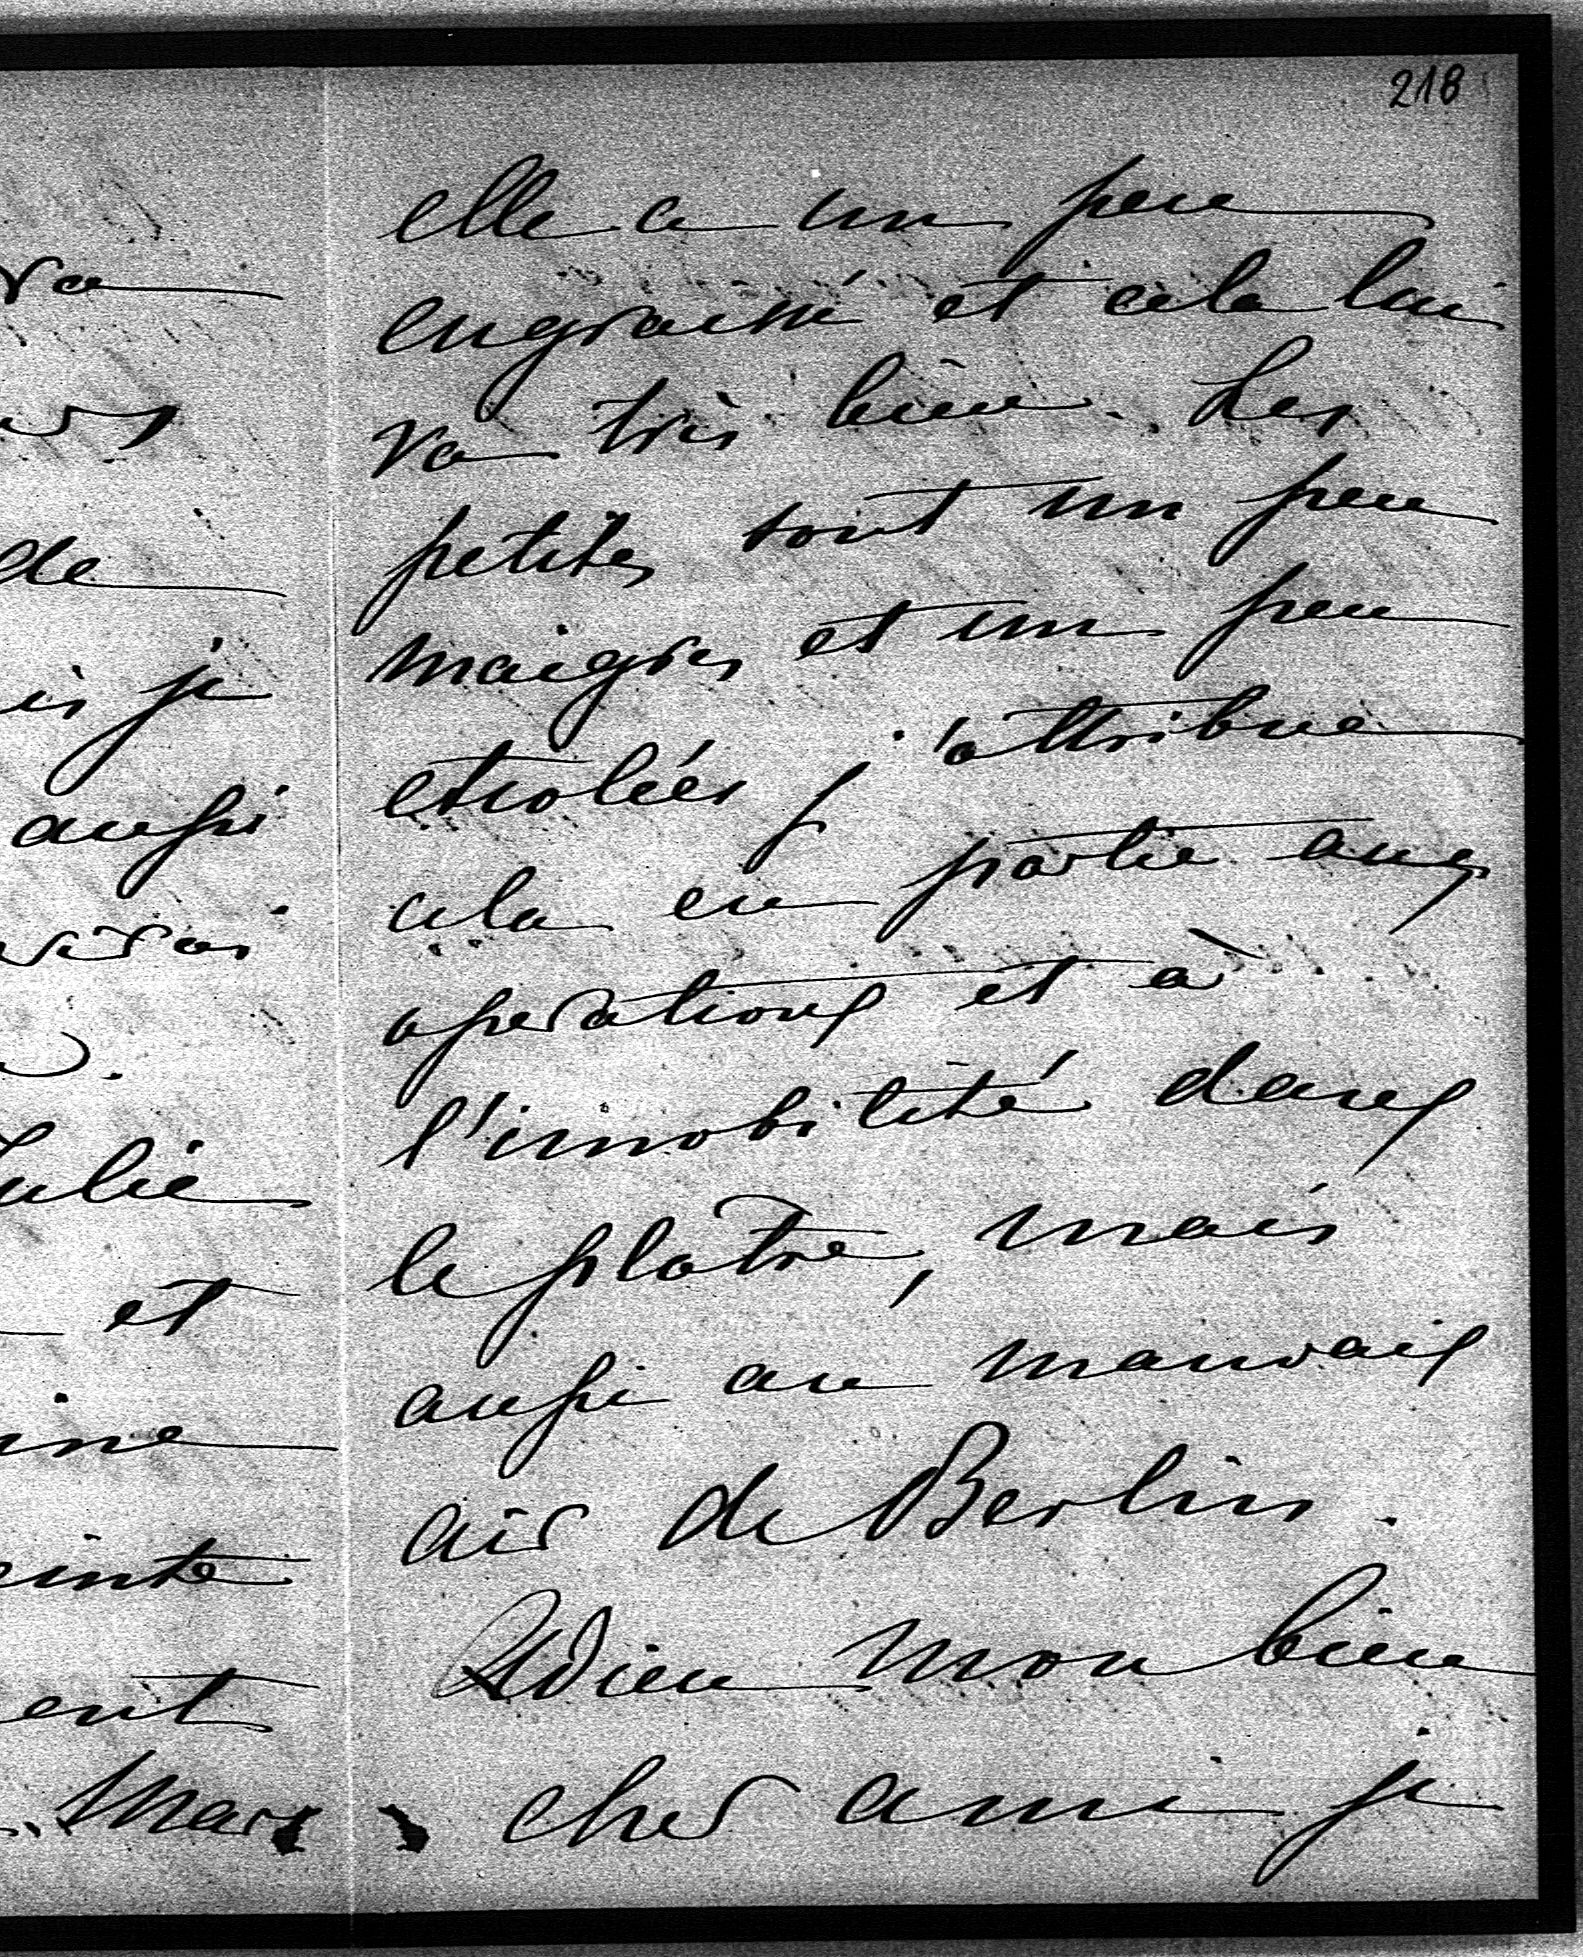 218
va
de
je
aussi
Julie
et
ent
Mars
elle a un peu
engraissé et cela lui
va très bien. Les
petites sont un peu
maigres et un peu
etiolées j'attribue
cela en partie aux
operations et à
l'imobilité dans
le platre, mais
aussi au mauvais
air de Berlin.
Adieu mon bien
cher ami je